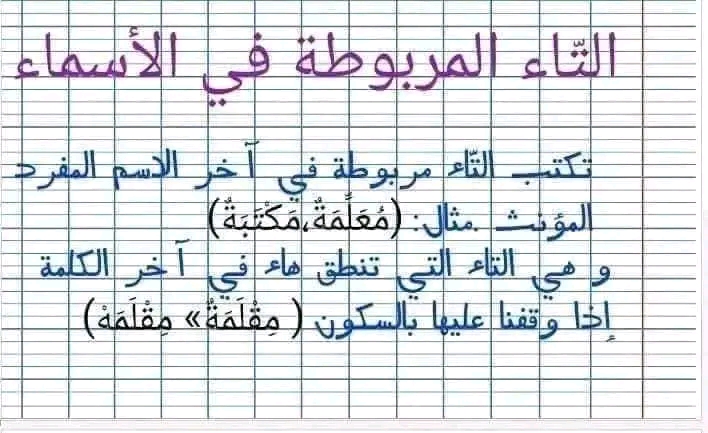 التّاء المربوطة في الأسماء
تكتب التّاء مربوطة في آخر الاسم المفرد
المؤنث .مثال: (مُعَلِّمَةٌ،مَكْتَبَةٌ)
و هي التاء التي تنطق هاء في آخر الكلمة
إذا وقفنا عليها بالسكون ( مِقْلَمَةٌ» مِقْلَمَهْ)